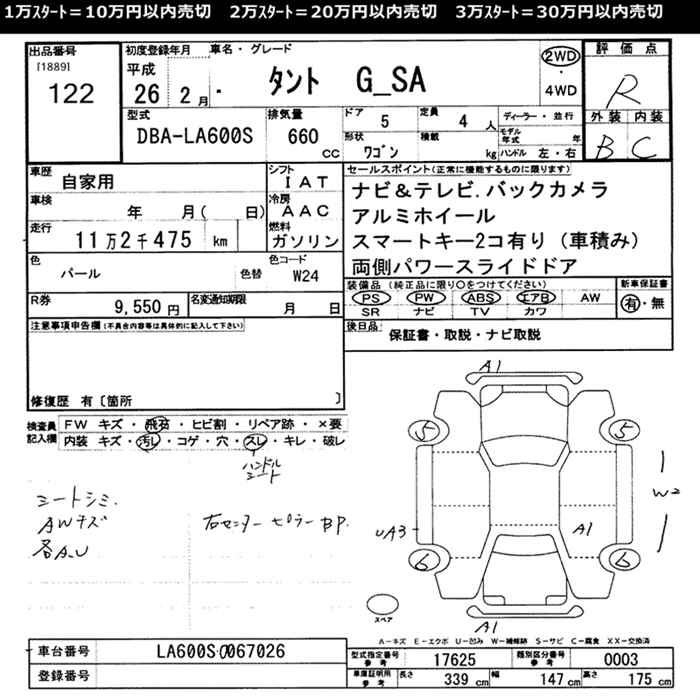 1万スタート＝10万円以内売切　2万スタート＝20万円以内売切　3万スタート＝30万円以内売切
出品番号
[1889]
122
初度登録年月
平成
26 2月
車名・グレード
タント　G_SA
2WD
・
4WD
評価点
R
外装 内装
B C
型式
DBA-LA600S
排気量
660
cc
ドア
5
定員
4 人
形状
ワゴン
積載
kg
ディーラー・並行
モデル年式 年
ハンドル 左・右
車歴
自家用
車検
年　月(　日)
走行
11万2千475 km
シフト
IAT
冷房
AAC
燃料
ガソリン
色
パール
色替
色コード
W24
R券
9,550円
名変通知期限
月　日
セールスポイント(正常に機能するものに限ります)
ナビ＆テレビ.バックカメラ
アルミホイール
スマートキー2コ有り（車積み）
両側パワースライドドア
装備品 (純正品に限り○をつけてください)
PS PW ABS エアB AW
SR ナビ TV カワ
新車保証書
有・無
後日品
保証書・取説・ナビ取説
注意事項申告欄(不具合内容等は具体的に記入して下さい)
修復歴 有〔箇所　〕
検査員記入欄
FW キズ・飛石・ヒビ割・リペア跡・×要
内装 キズ・汚レ・コゲ・穴・スレ・キレ・破レ
ハンドル
シート
シートシミ.
AWキズ
各A_U
右センターピラーBP.
A1
5
5
W2
UA3
A1
6
6
A1
スペア
A－キズ E－エクボ U－凹み W－補修跡 S－サビ C－腐食 XX－交換済
車台番号
LA600S-0067026
登録番号
型式指定番号
参考
17625
類別区分番号
参考
0003
車庫証明用
参考
長さ
339 cm
幅
147 cm
高さ
175 cm